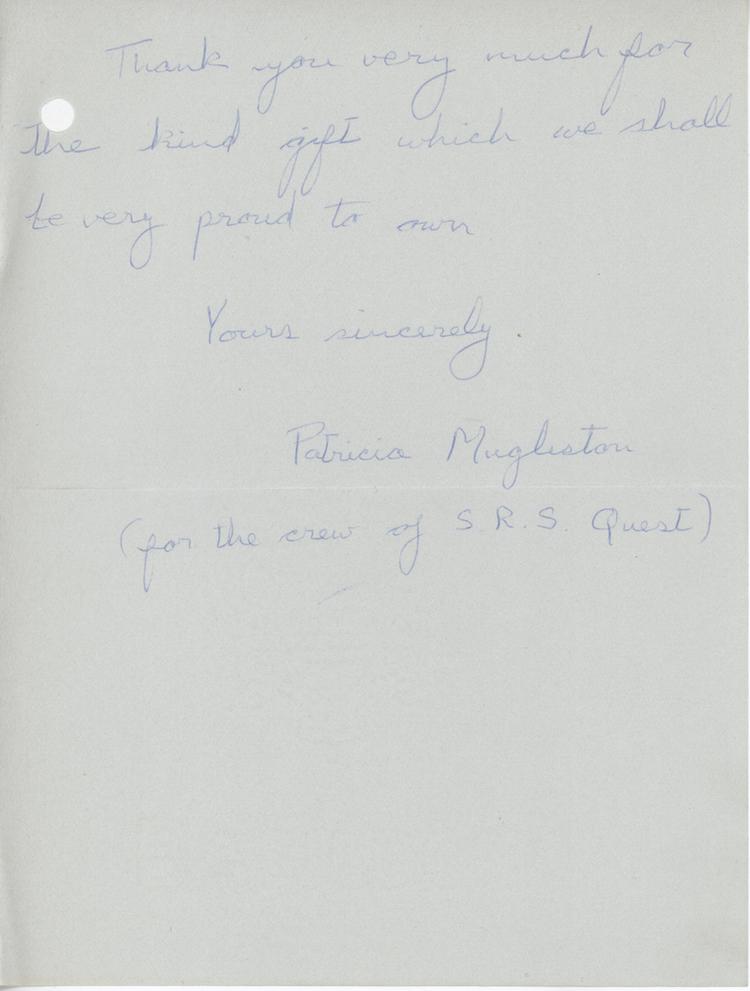 Thank you very much for
the kind gift which we shall
be very proud to own
Yours sincerely.
Patricia Mugleston
(for the crew of S.R.S. Quest)